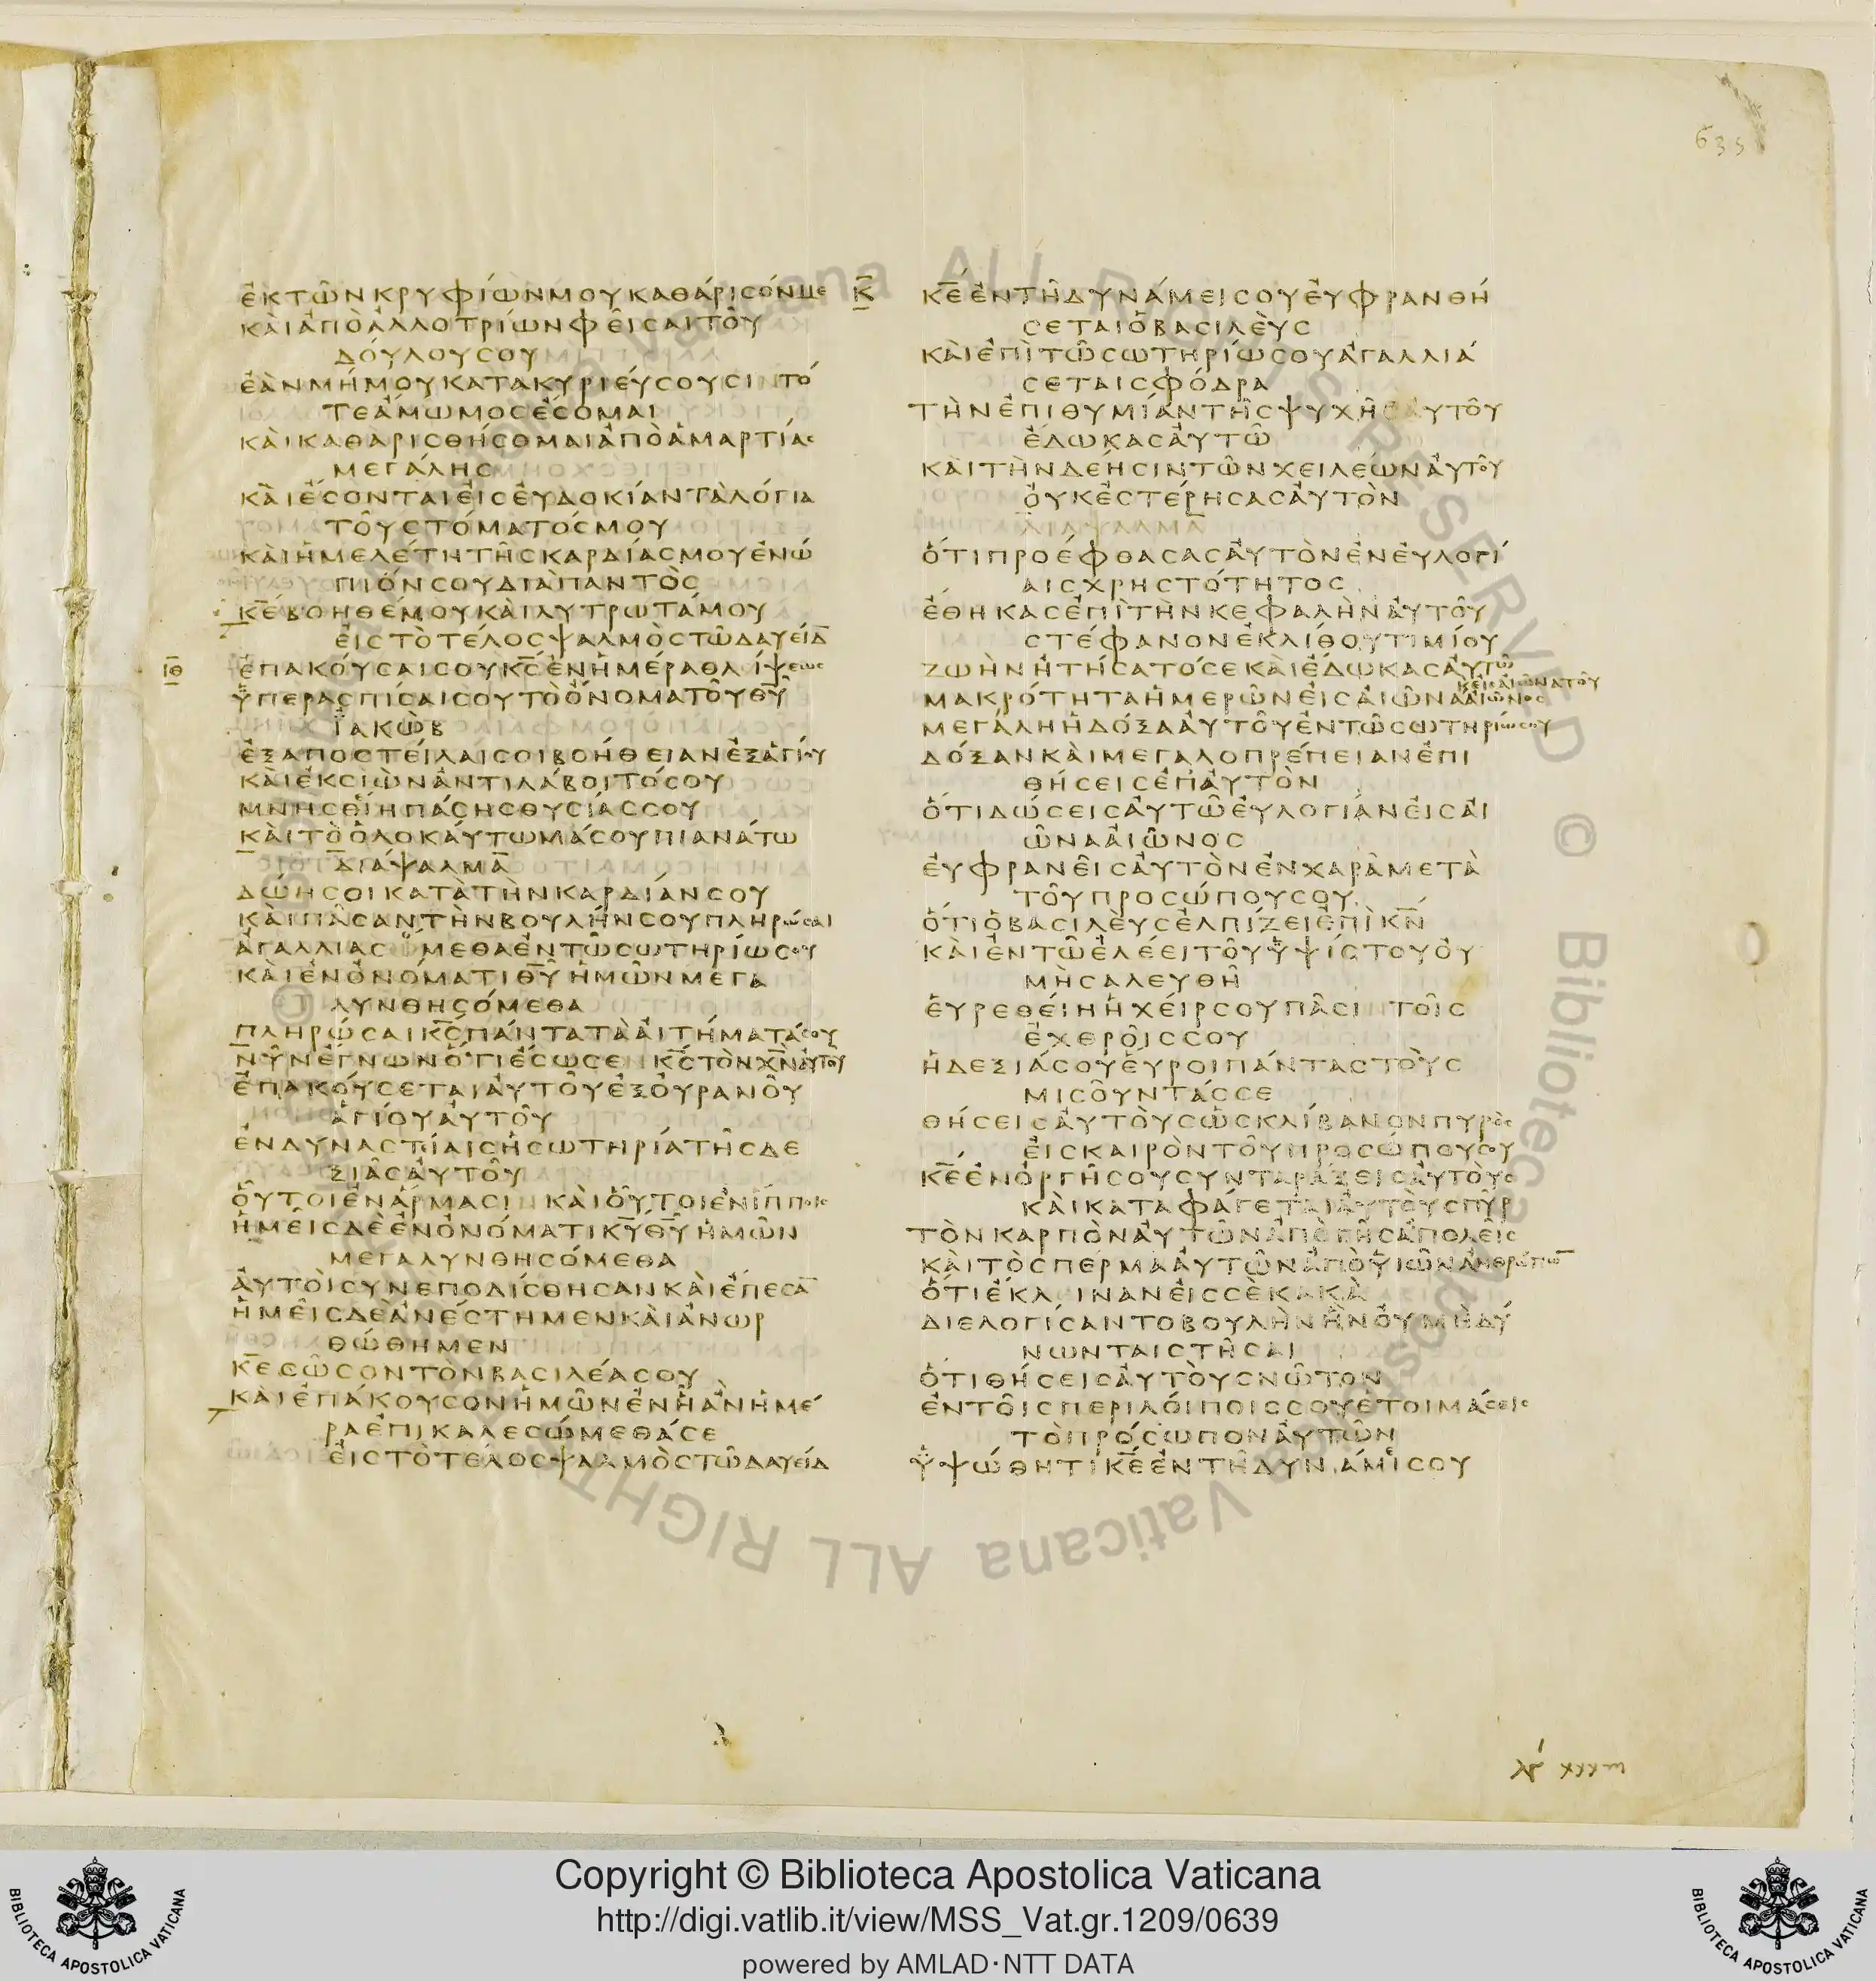 635
ἐκτῶνκρυφίωνμουκαθάρισόνμε
κὰιἀπὸἀλλοτρίωνφεῖσαιτοῦ
δόυλουσου
ἐὰνμήμουκατακυριέυσουσιντό
τεἄμωμοσἔσομαι
κὰικαθαρισθήσομαιἀπὸἁμαρτίασ
μεγάλησ
κὰιἔσονταιἐισἐυδοκίανταλόγια
τοῦστόματόσμου
κὰιἡμελέτητῆσκαρδίασμουἐνώ
πιόνσουδιαπαντὸσ
κ̅ε̅βοηθέμουκὰιλυτρωτάμου
ἐιστὸτέλοσψαλμὸστῶδαυείδ
ι̅θ̅
ἐπακόυσαισουκ̅σ̅ἐνἡμέραθλίψεωσ
ὑπερασπίσαισουτὸὄνοματοῦθ̅υ̅
ϊακὼβ
ἐξαποστείλαισοιβοήθειανἐξἁγίου
κὰιἐκσιὼνἀντιλάβοιτόσου
μνησθείηπάσησθυσίασσου
κὰιτὸὁλοκάυτωμάσουπιανάτω
διάψαλμα
δώησοικατὰτὴνκαρδίανσου
κὰιπᾶσαντὴνβουλήνσουπληρώσαι
ἀγαλλιασόμεθαἐντῶσωτηρίωσου
κὰιἐνὀνόματιθ̅υ̅ἡμῶνμεγα
λυνθησόμεθα
πληρώσαικ̅σ̅πάντατὰἀιτήματάσου
νῦνἔγνωνὅτιἔσωσενκ̅σ̅τὸνχ̅ν̅ἀυτοῦ
ἐπακόυσεταιἀυτοῦἐξὀυρανοῦ
ἁγίουἀυτοῦ
ἐνδυναστίαισἡσωτηρίατῆσδε
ξιᾶσἀυτοῦ
ὅυτοιἐνἅρμασινκὰιὅυτοιἐνἵπποισ
ἡμεῖσδὲἐνὀνόματικ̅υ̅θ̅υ̅ἡμῶν
μεγαλυνθησόμεθα
ἀυτὸισυνεποδίσθησανκὰιἔπεσα̅
ἡμεῖσδὲἀνέστημενκὰιἀνωρ
θώθημεν
κ̅ε̅σῶσοντὸνβασιλέασου
κὰιἐπάκουσονἡμῶνἐνῆἂνἡμέ
ραἐπικαλεσώμεθάσε
ἐιστὸτέλοσψαλμὸστῶδαυείδ
κ̅
κ̅ε̅ἐντῆδυνάμεισουἐυφρανθή
σεταιὁβασιλὲυσ
κὰιἐπὶτῶσωτηρίωσουἀγαλλιά
σεταισφόδρα
τὴνἐπιθυμίαντῆσψυχῆσἀυτοῦ
ἔδωκασἀυτῶ
κὰιτὴνδεήσιντῶνχειλέωνἀυτοῦ
ὀυκἐστέρησασἀυτὸν
διάψαλμα
ὅτιπροέφθασασἀυτὸνἐνἐυλογί
αισχρηστότητοσ
ἔθηκασἐπὶτὴνκεφαλὴνἀυτοῦ
στέφανονἐκλίθουτιμίου
ζωὴνἠτήσατόσεκὰιἔδωκασἀυτῶ
μακρότηταἡμερῶνἐισἀιῶνἀἀιῶνοσ
μεγάληἡδόξαἀυτοῦἐντῶσωτηρίωσου
δόξανκὰιμεγαλοπρέπειανἐπι
θήσεισἐπἀυτὸν
ὅτιδώσεισἀυτῶἐυλογίανἐισἀι
ῶναἀιῶνοσ
ἐυφρανεῖσἀυτὸνἐνχαρὰμετὰ
τοῦπροσώπουσου
ὅτιὁβασιλὲυσἐλπίζειἐπὶκ̅ν̅
κὰιἐντῶἐλέειτοῦὑψίστουὀυ
μὴσαλευθῆ
ἑυρεθείηἡχείρσουπᾶσιντοῖσ
ἐχθροῖσσου
ἡδεξιάσουἕυροιπάνταστὸυσ
μισοῦντάσσε
θήσεισἀυτὸυσὡσκλίβανονπυρὸσ
ἐισκαιρὸντοῦπροσώπουσου
κ̅ε̅ἐνὀργῆσουσυνταράξεισἀυτὸυσ
κὰικαταφάγεταιἀυτὸυσπῦρ
τὸνκαρπὸνἀυτῶνἀπὸγῆσἀπολεῖσ
κὰιτὸσπερμαἀυτῶνἀπὸὑιῶνἀνθρώπω̅
ὅτιἔκλινανἐισσὲκακὰ
διελογίσαντοβουλὴνἣνὀυμὴδύ
νωνταιστῆσαι
ὅτιθήσεισἀυτὸυσνῶτον
ἐντοῖσπεριλόιποισσουἑτοιμάσεισ
τὸπρόσωπονἀυτῶν
ὑψώθητικ̅ε̅ἐντῆδυνάμισου
Copyright © Biblioteca Apostolica Vaticana
http://digi.vatlib.it/view/MSS_Vat.gr.1209/0639
powered by AMLAD·NTT DATA
BIBLIOTECA APOSTOLICA VATICANA
BIBLIOTECA APOSTOLICA VATICANA